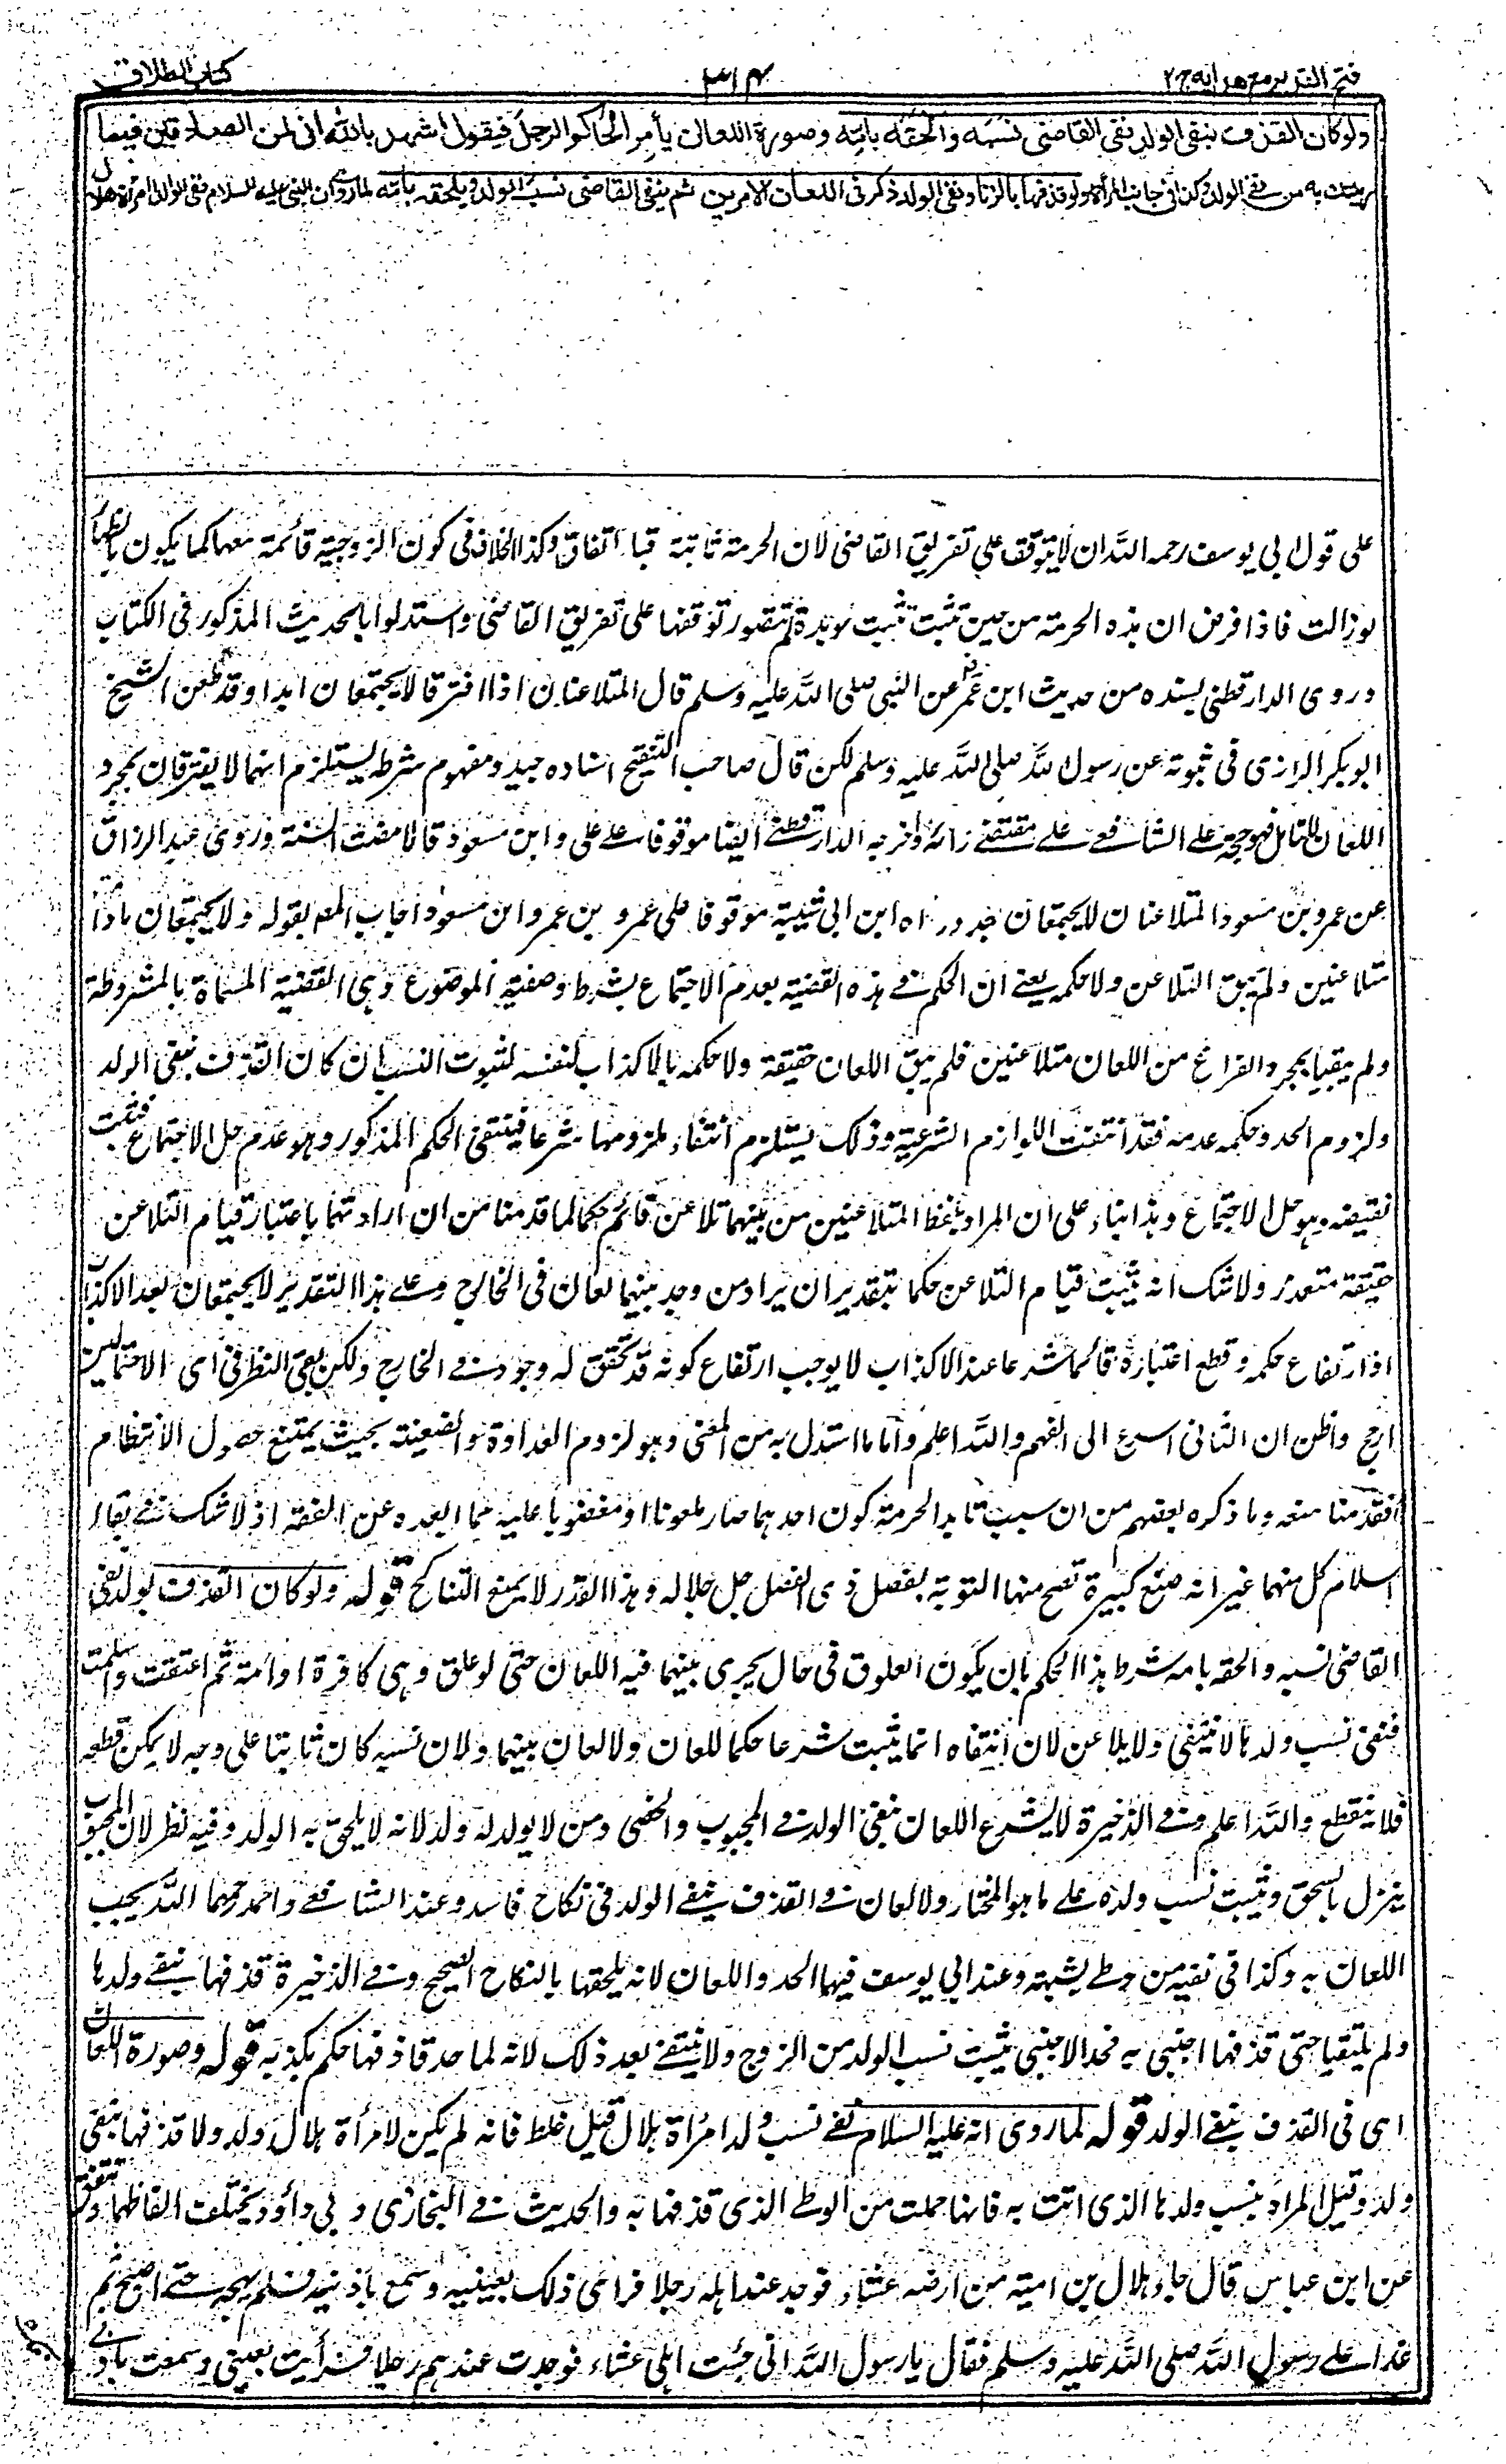 فتح القدير مع هدايه ج ٢
٣١٣
كتاب الطلاق
ولو كان القذف بنفى الولد نفى القاضى نسبه والحقه بامه وصورة اللعان يأمر الحاكم الرجل فيقول اشهد بالله انى لمن الصادقين فيما
رميتك به من نفى الولد وكذا فى جانب المرأة ولو قذفها بالزنا ونفى الولد ذكر فى اللعان الامرين ثم ينفى القاضى نسب الولد ويلحقه بامه لما روى ان النبى عليه السلام نفى الولد امرأة هلال
على قول ابى يوسف رحمه الله ان لا يتوقف على تفريق القاضى لان الحرمة ثابتة قبله اتفاقا وكذا الخلاف فى كون الزوجية قائمة معها كما يكون بالظهار
لو زالت فاذا فرض ان هذه الحرمة من حين تثبت تثبت مؤبدة لم تتصور توقفها على تفريق القاضى واستدلوا بالحديث المذكور فى الكتاب
وروى الدارقطنى بسنده من حديث ابن عمر عن النبى صلى الله عليه وسلم قال المتلاعنان اذا افترقا لا يجتمعان ابدا وقد طعن الشيخ
ابو بكر الرازى فى ثبوته عن رسول الله صلى الله عليه وسلم لكن قال صاحب التنقيح اسناده جيد ومفهوم شرطه يستلزم انهما لا يفترقان بمجرد
اللعان فهو حجة على الشافعى على مقتضى رأيه واخرجه الدارقطنى ايضا موقوفا على على وابن مسعود قالا مضت السنة وروى عبد الرزاق
عن عمر وبن مسعود المتلاعنان لا يجتمعان ابدا ورواه ابن ابى شيبة موقوفا على عمر و بن عمر وابن مسعود اجاب المص بقوله ولا يجتمعان ماداما
متلاعنين ولم يبق التلاعن ولا حكمه يعنى ان الحكم فى هذه القضية بعدم الاجتماع بشرط وصفية الموضوع وهى القضية المسماة بالمشروطة
ولم يبقيا بمجرد الفراغ من اللعان متلاعنين فلم يبق اللعان حقيقة ولا حكمه بالاكذاب لنفسه لثبوت النسب ان كان القذف بنفى الولد
ولزوم الحد وحكمه عدمه فقد انتفت اللوازم الشرعية وذلك يستلزم انتفاء ملزومها شرعا فينتفى الحكم المذكور وهو عدم حل الاجتماع فيثبت
نقيضه وهو حل الاجتماع وهذا بناء على ان المراد بلفظ المتلاعنين من بينهما تلاعن قائم حكما لما قدمنا من ان ارادتهما باعتبار قيام التلاعن
حقيقة متعذر ولا شك انه يثبت قيام التلاعن حكما بتقدير ان يراد من وجد بينهما لعان فى الخارج وعلى هذا التقدير لا يجتمعان بعد الاكذاب
اذ ارتفاع حكمه وقطع اعتباره قائما شرعا عند الاكذاب لا يوجب ارتفاع كونه قد تحقق له وجود فى الخارج ولكن بقى النظر فى اى الاحتمالين
ارجح واظن ان الثانى اسرع الى الفهم والله اعلم واما ما استدل به من المعنى وهو لزوم العداوة والضغينة بحيث يمتنع حصول الانتظام
فقد قدمنا منعه وما ذكره بعضهم من ان سبب تأبد الحرمة كون احدهما صار ملعونا او مغضوبا عليه فما ابعده عن الفقه اذ لا شك فى بقاء
اسلام كل منهما غير انه صنع كبيرة تصح منها التوبة بفضل ذى الفضل جل جلاله وهذا القدر لا يمنع التناكح قوله ولو كان القذف بولد نفى
القاضى نسبه والحقه بامه شرط هذا الحكم بان يكون العلوق فى حال يجرى بينهما فيه اللعان حتى لو علق وهى كافرة او امة ثم اعتقت واسلمت
فنفى نسب ولدها لا ينتفى ولا يلاعن لان انتفاه انما يثبت شرعا حكما للعان ولا لعان بينهما ولان نسبه كان ثابتا على وجه لا يمكن قطعه
فلا ينقطع والله اعلم وفى الذخيرة لا يشرع اللعان بنفى الولد فى المجبوب والخصى ومن لا يولد له ولد لانه لا يلحق به الولد وفيه نظر لان المجبوب
ينزل بالسحق ويثبت نسب ولده على ما هو المختار ولا لعان فى القذف بنفى الولد فى نكاح فاسد وعند الشافعى واحمد رحمهما الله يجب
اللعان به وكذا فى نفيه من وطى بشبهة وعند ابى يوسف فيهما الحد واللعان لانه يلحقها بالنكاح الصحيح وفى الذخيرة قذفها بنفى ولدها
ولم يلتعنا حتى قذفها اجنبى به فحد الاجنبى يثبت نسب الولد من الزوج ولا ينتفى بعد ذلك لانه لما حد قاذفها حكم بكذبه قوله وصورة اللعان
اى فى القذف بنفى الولد قوله لما روى انه عليه السلام نفى نسب ولد امرأة هلال قيل غلط فانه لم يكن لامرأة هلال ولد ولا قذفها بنفى
ولد وقيل المراد بنسب ولدها الذى اتت به فانها حملت من الوطى الذى قذفها به والحديث فى البخارى و بى داؤد ويختلف الفاظهما ويتفق
عن ابن عباس قال جاء هلال بن امية من ارضه عشاء فوجد عند اهله رجلا فرأى ذلك بعينيه وسمع باذنيه فلم يهجه حتى اصبح ثم
غدا على رسول الله صلى الله عليه وسلم فقال يا رسول الله انى جئت اهلى عشاء فوجدت عندهم رجلا فرأيت بعينى وسمعت باذنى